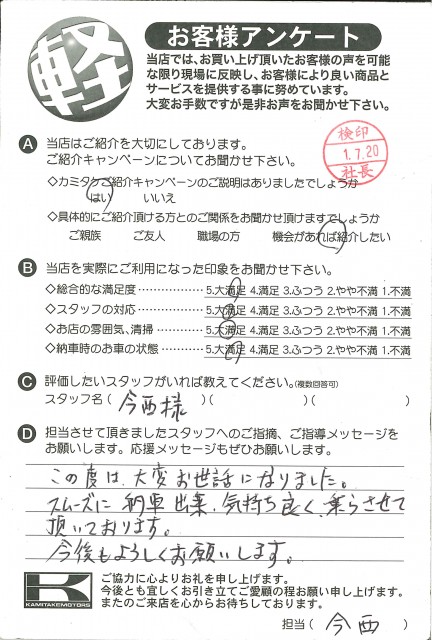 軽
お客様アンケート
当店では、お買い上げ頂いたお客様の声を可能
な限り現場に反映し、お客様により良い商品と
サービスを提供する事に努めています。
大変お手数ですが是非お声をお聞かせ下さい。
検印
1.7.20
社長
A 当店はご紹介を大切にしております。
ご紹介キャンペーンについてお聞かせ下さい。
◇カミタケご紹介キャンペーンのご説明はありましたでしょうか
はい いいえ
◇具体的にご紹介頂ける方とのご関係をお聞かせ頂けますでしょうか
ご親族 ご友人 職場の方 機会があれば紹介したい
B 当店を実際にご利用になった印象をお聞かせ下さい。
◇総合的な満足度 …………… 5.大満足 4.満足 3.ふつう 2.やや不満 1.不満
◇スタッフの対応 …………… 5.大満足 4.満足 3.ふつう 2.やや不満 1.不満
◇お店の雰囲気、清掃 ………… 5.大満足 4.満足 3.ふつう 2.やや不満 1.不満
◇納車時のお車の状態 ………… 5.大満足 4.満足 3.ふつう 2.やや不満 1.不満
C 評価したいスタッフがいれば教えてください。(複数回答可)
スタッフ名 ( 今西様 )( )( )
D 担当させて頂きましたスタッフへのご指摘、ご指導メッセージを
お願いします。応援メッセージもぜひお願いします。
この度は、大変お世話になりました。
スムーズに納車出来、気持ち良く、乗らさせて
頂いております。
今後もよろしくお願いします。
K
KAMITAKEMOTORS
ご協力に心よりお礼を申し上げます。
今後とも宜しくお引き立てご愛顧の程お願い申し上げます。
またのご来店を心からお待ちしております。
担当 ( 今西 )